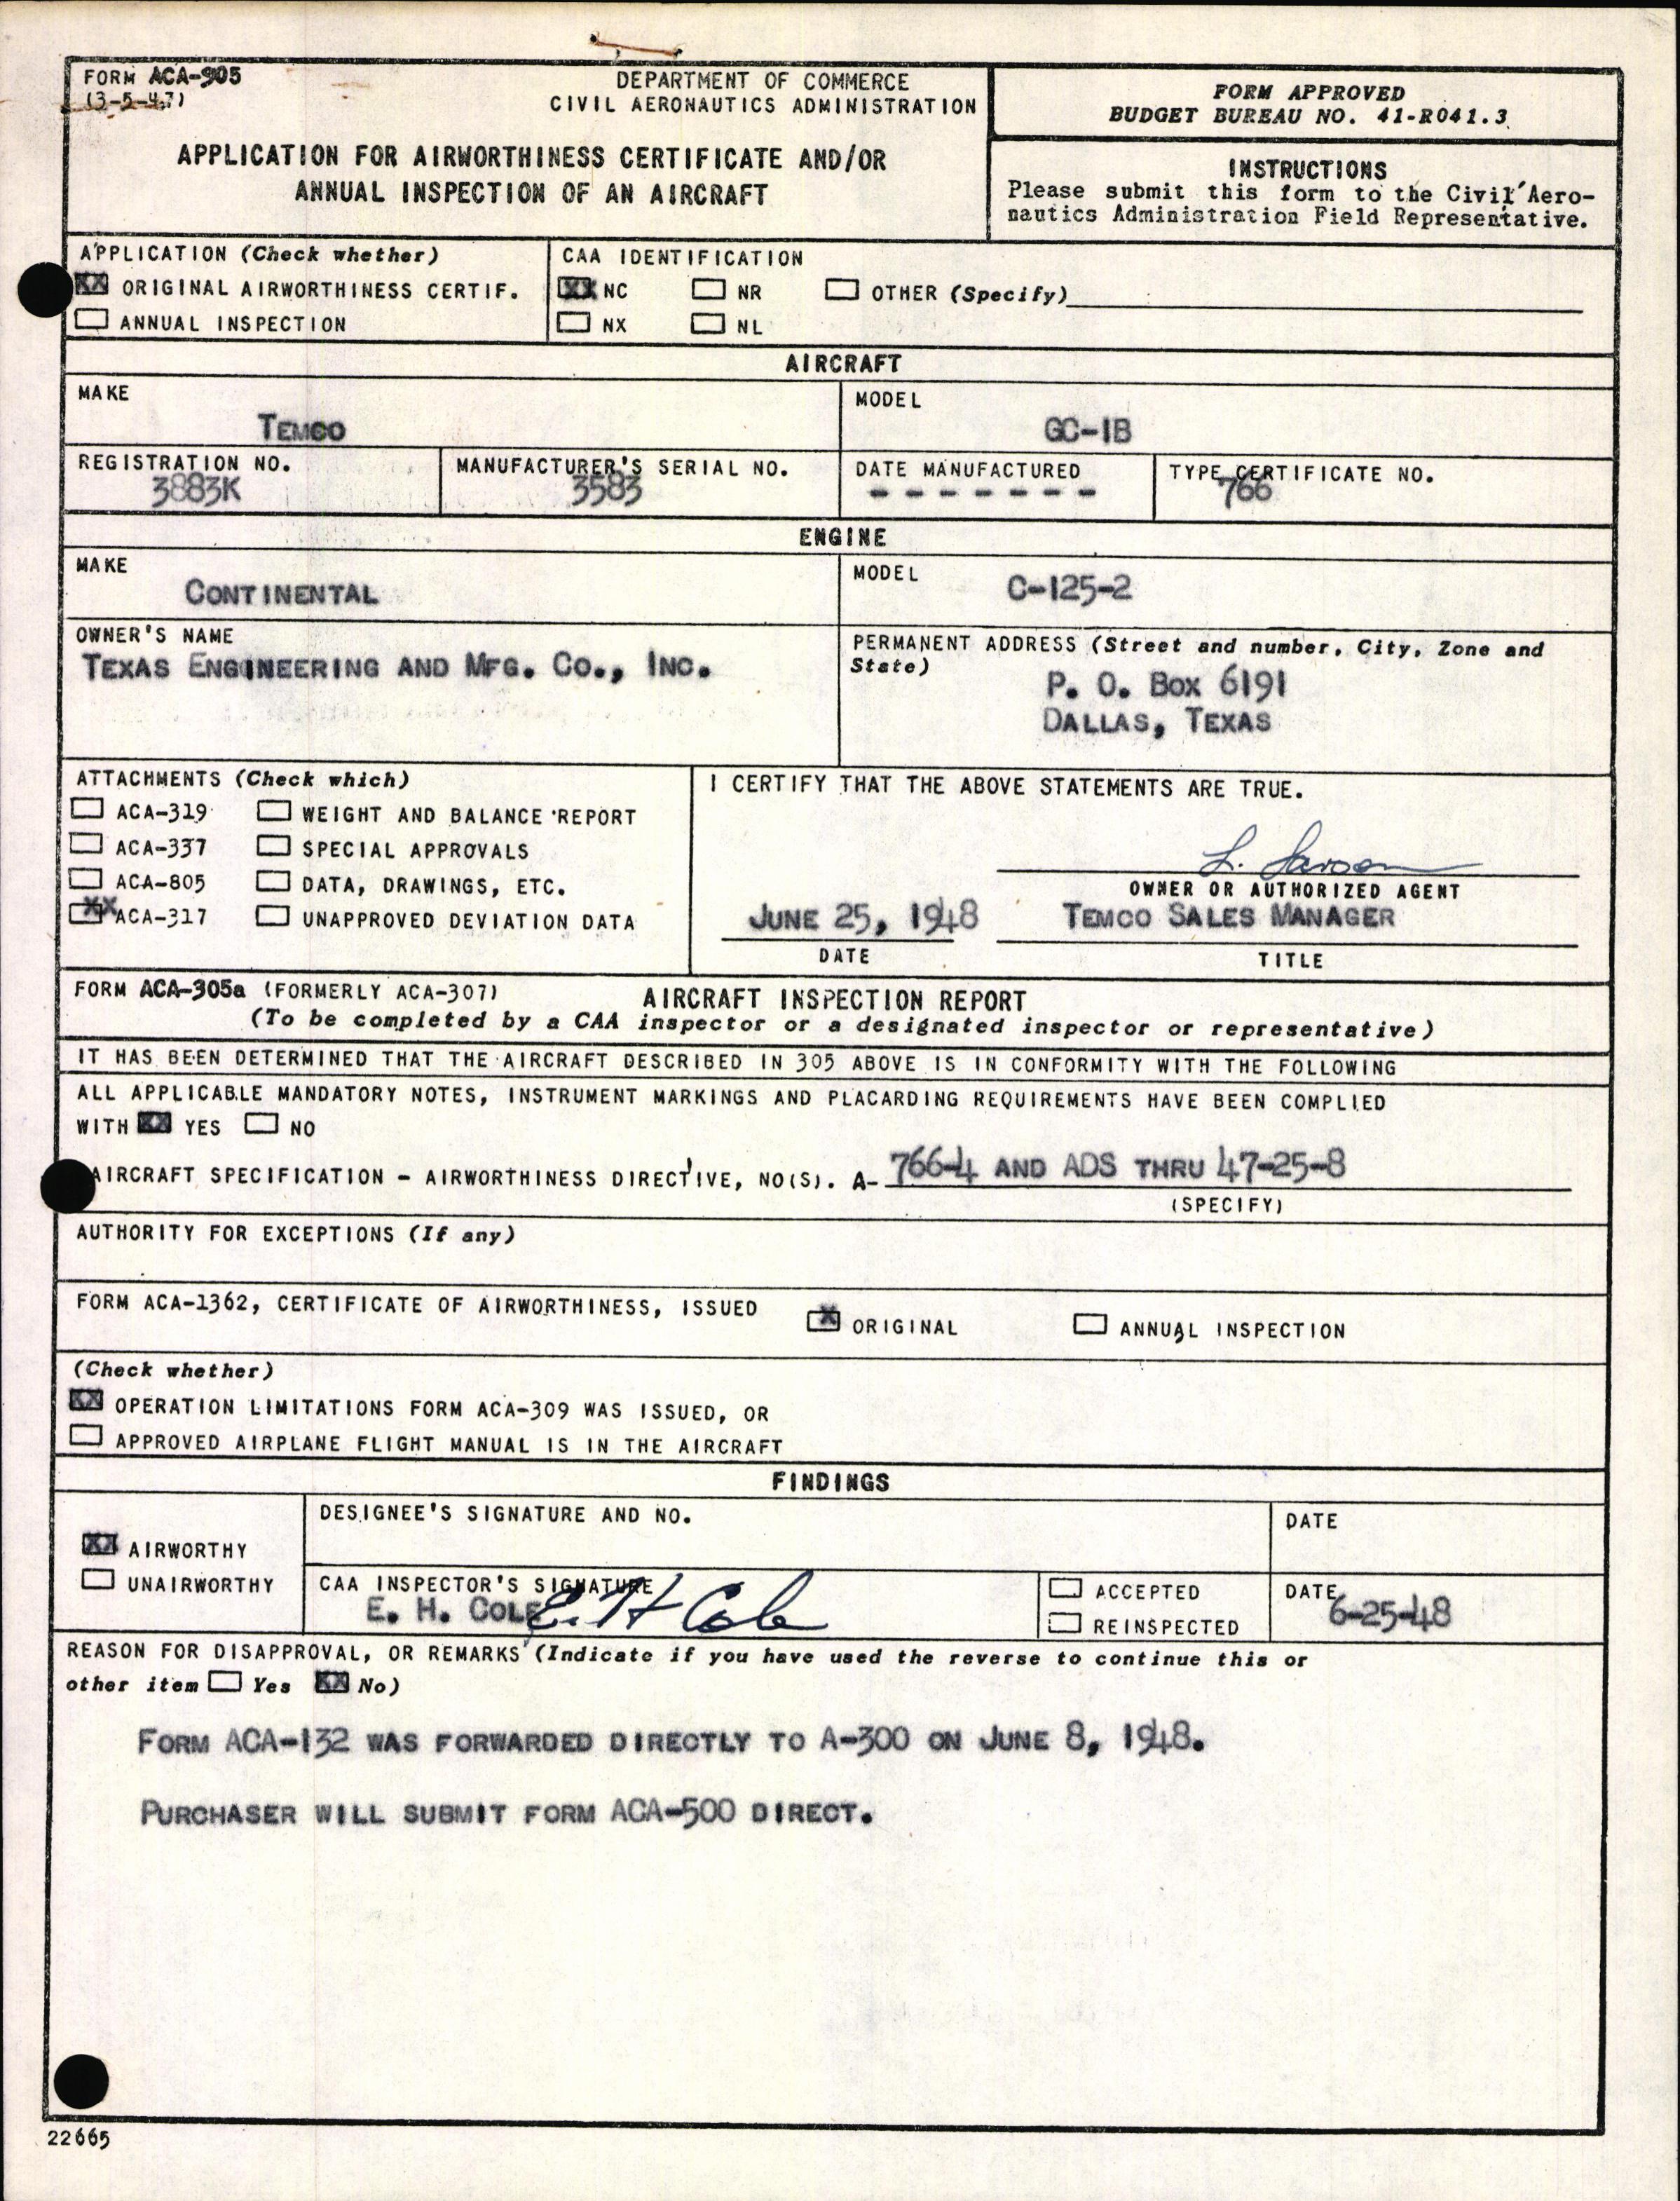 FORM ACA-905
(3-5-47)
DEPARTMENT OF COMMERCE
CIVIL AERONAUTICS ADMINISTRATION
APPLICATION FOR AIRWORTHINESS CERTIFICATE AND/OR
ANNUAL INSPECTION OF AN AIRCRAFT
FORM APPROVED
BUDGET BUREAU NO. 41-R041.3
INSTRUCTIONS
Please submit this form to the Civil Aero-
nautics Administration Field Representative.
APPLICATION (Check whether)
XX ORIGINAL AIRWORTHINESS CERTIF.
ANNUAL INSPECTION
CAA IDENTIFICATION
XX NC NR OTHER (Specify)
NX NL
AIRCRAFT
MAKE
TEMCO
MODEL
GC-1B
REGISTRATION NO.
3883K
MANUFACTURER'S SERIAL NO.
3583
DATE MANUFACTURED
- - - - - - -
TYPE CERTIFICATE NO.
766
ENGINE
MAKE
CONTINENTAL
MODEL
C-125-2
OWNER'S NAME
TEXAS ENGINEERING AND MFG. CO., INC.
PERMANENT ADDRESS (Street and number, City, Zone and
State)
P. O. BOX 6191
DALLAS, TEXAS
ATTACHMENTS (Check which)
ACA-319 WEIGHT AND BALANCE REPORT
ACA-337 SPECIAL APPROVALS
ACA-805 DATA, DRAWINGS, ETC.
XX ACA-317 UNAPPROVED DEVIATION DATA
I CERTIFY THAT THE ABOVE STATEMENTS ARE TRUE.
L. Larson
OWNER OR AUTHORIZED AGENT
JUNE 25, 1948
DATE
TEMCO SALES MANAGER
TITLE
FORM ACA-305a (FORMERLY ACA-307)
AIRCRAFT INSPECTION REPORT
(To be completed by a CAA inspector or a designated inspector or representative)
IT HAS BEEN DETERMINED THAT THE AIRCRAFT DESCRIBED IN 305 ABOVE IS IN CONFORMITY WITH THE FOLLOWING
ALL APPLICABLE MANDATORY NOTES, INSTRUMENT MARKINGS AND PLACARDING REQUIREMENTS HAVE BEEN COMPLIED
WITH XX YES NO
AIRCRAFT SPECIFICATION - AIRWORTHINESS DIRECTIVE, NO(S). A- 766-4 AND ADS THRU 47-25-8
(SPECIFY)
AUTHORITY FOR EXCEPTIONS (If any)
FORM ACA-1362, CERTIFICATE OF AIRWORTHINESS, ISSUED X ORIGINAL ANNUAL INSPECTION
(Check whether)
XX OPERATION LIMITATIONS FORM ACA-309 WAS ISSUED, OR
APPROVED AIRPLANE FLIGHT MANUAL IS IN THE AIRCRAFT
FINDINGS
XX AIRWORTHY
UNAIRWORTHY
DESIGNEE'S SIGNATURE AND NO.
DATE
CAA INSPECTOR'S SIGNATURE
E. H. COLE E. H Cole
ACCEPTED
REINSPECTED
DATE
6-25-48
REASON FOR DISAPPROVAL, OR REMARKS (Indicate if you have used the reverse to continue this or
other item Yes XX No)
FORM ACA-132 WAS FORWARDED DIRECTLY TO A-300 ON JUNE 8, 1948.
PURCHASER WILL SUBMIT FORM ACA-500 DIRECT.
22665